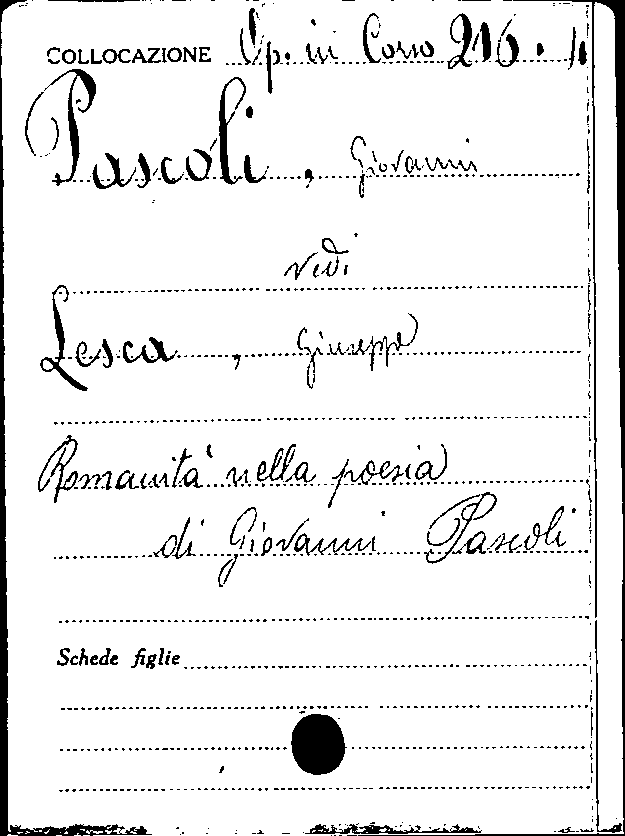 COLLOCAZIONE Op. in Corso 216. 4
Pascoli, Giovanni
vedi
Lesca, Giuseppe
Romanità nella poesia
di Giovanni Pascoli
Schede figlie